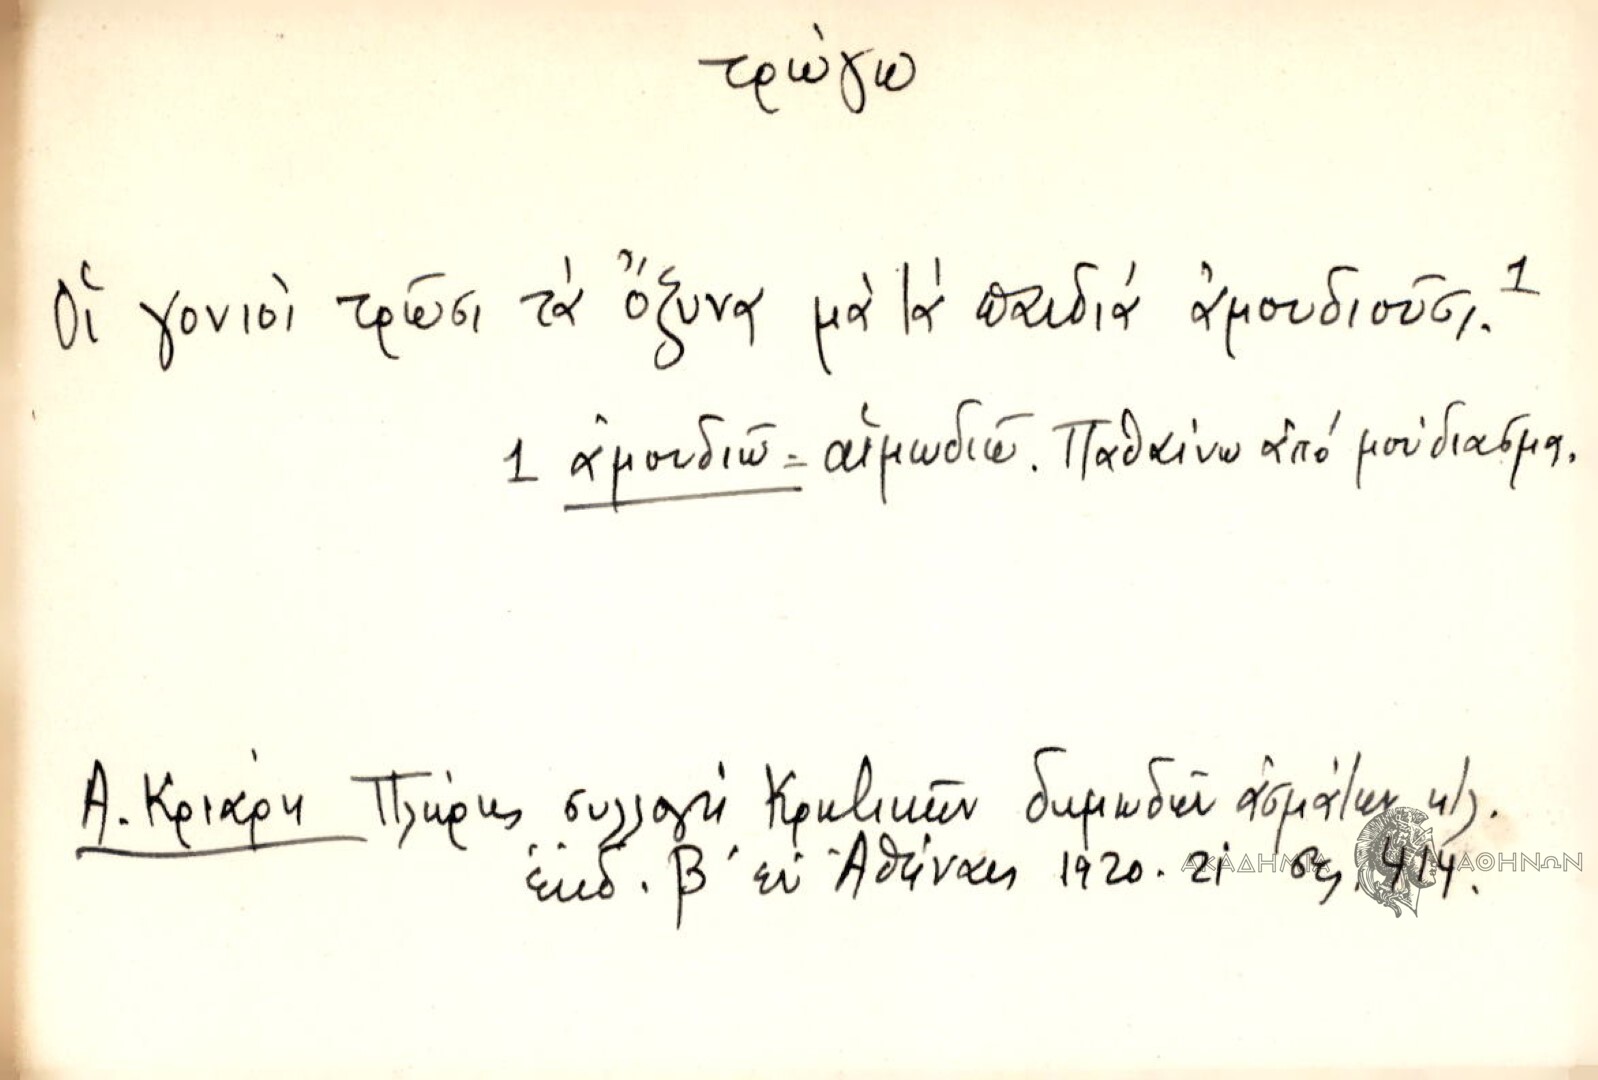 τρώγω
Οἱ γονιοὶ τρῶσι τά ὄξυνα μὰ τά παιδιά ἀμουδιοῦσι.1
1 ἀμουδιῶ = αἱμωδιῶ. Παθαίνω ἀπό μούδιασμα.
Α. Κριάρη Πλήρης συλλογή Κρητικῶν δημωδῶν ἀσμάτων κτλ.
ἐκδ. Β΄ ἐν Ἀθήναις 1920. σελ. 414.
ΑΚΑΔΗΜΙΑ ΑΘΗΝΩΝ